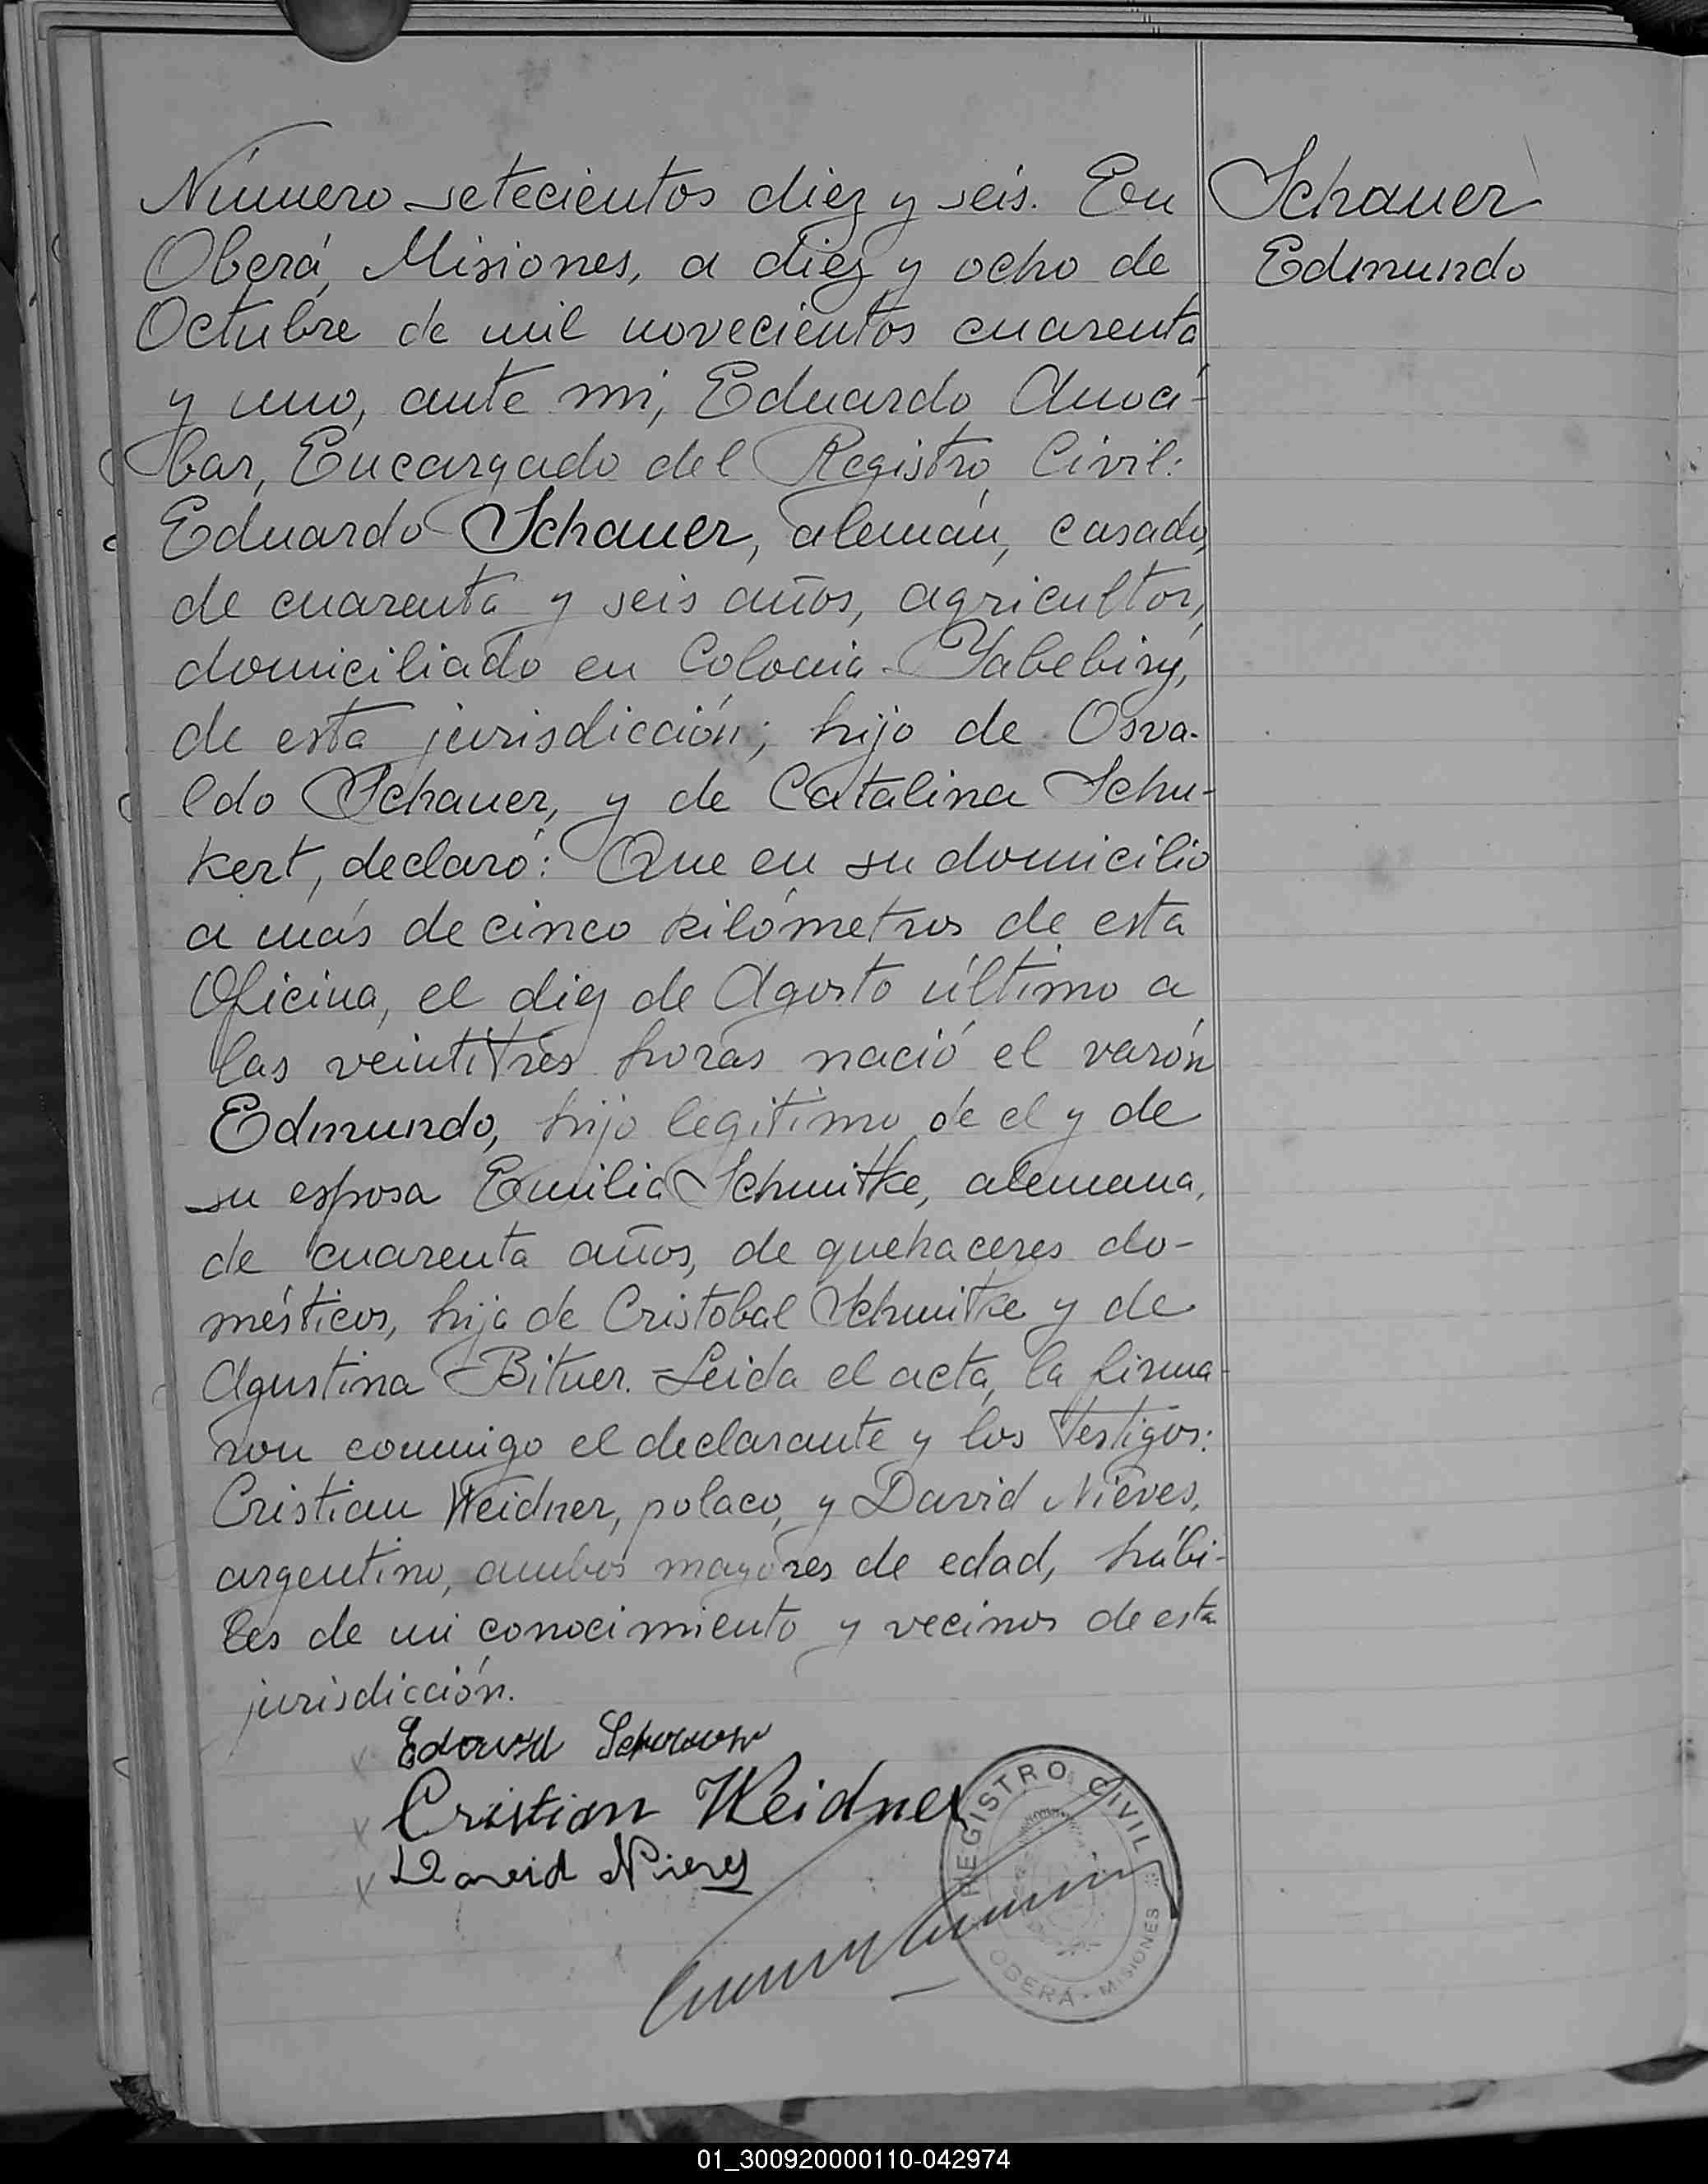 Número setecientos diez y seis. En
Schauer
Oberá, Misiones, a diez y ocho de
Edmundo
Octubre de mil novecientos cuarenta
y uno, ante mi, Eduardo Amoa-
bar, Encargado del Registro Civil:
Eduardo Schauer, alemán, casado,
de cuarenta y seis años, agricultor,
domiciliado en Colonia Yabebiry,
de esta jurisdicción; hijo de Osva-
ldo Schauer, y de Catalina Schu-
kert, declaró: Que en su domicilio
a más de cinco kilómetros de esta
Oficina, el diez de Agosto último a
las veintitrés horas nació el varón
Edmundo, hijo legitimo de el y de
su esposa Emilia Schmitke, alemana,
de cuarenta años, de quehaceres do-
mésticos, hija de Cristobal Schmitke y de
Agustina Bitner. =Leida el acta, la firma-
ron conmigo el declarante y los testigos:
Cristian Weidner, polaco, y David Nieves,
argentino, ambos mayores de edad, hábi-
les de mi conocimiento y vecinos de esta
jurisdicción.
Cristian Weidner
David
REGISTRO CIVIL
OBERÁ - MISIONES
01_300920000110-042974